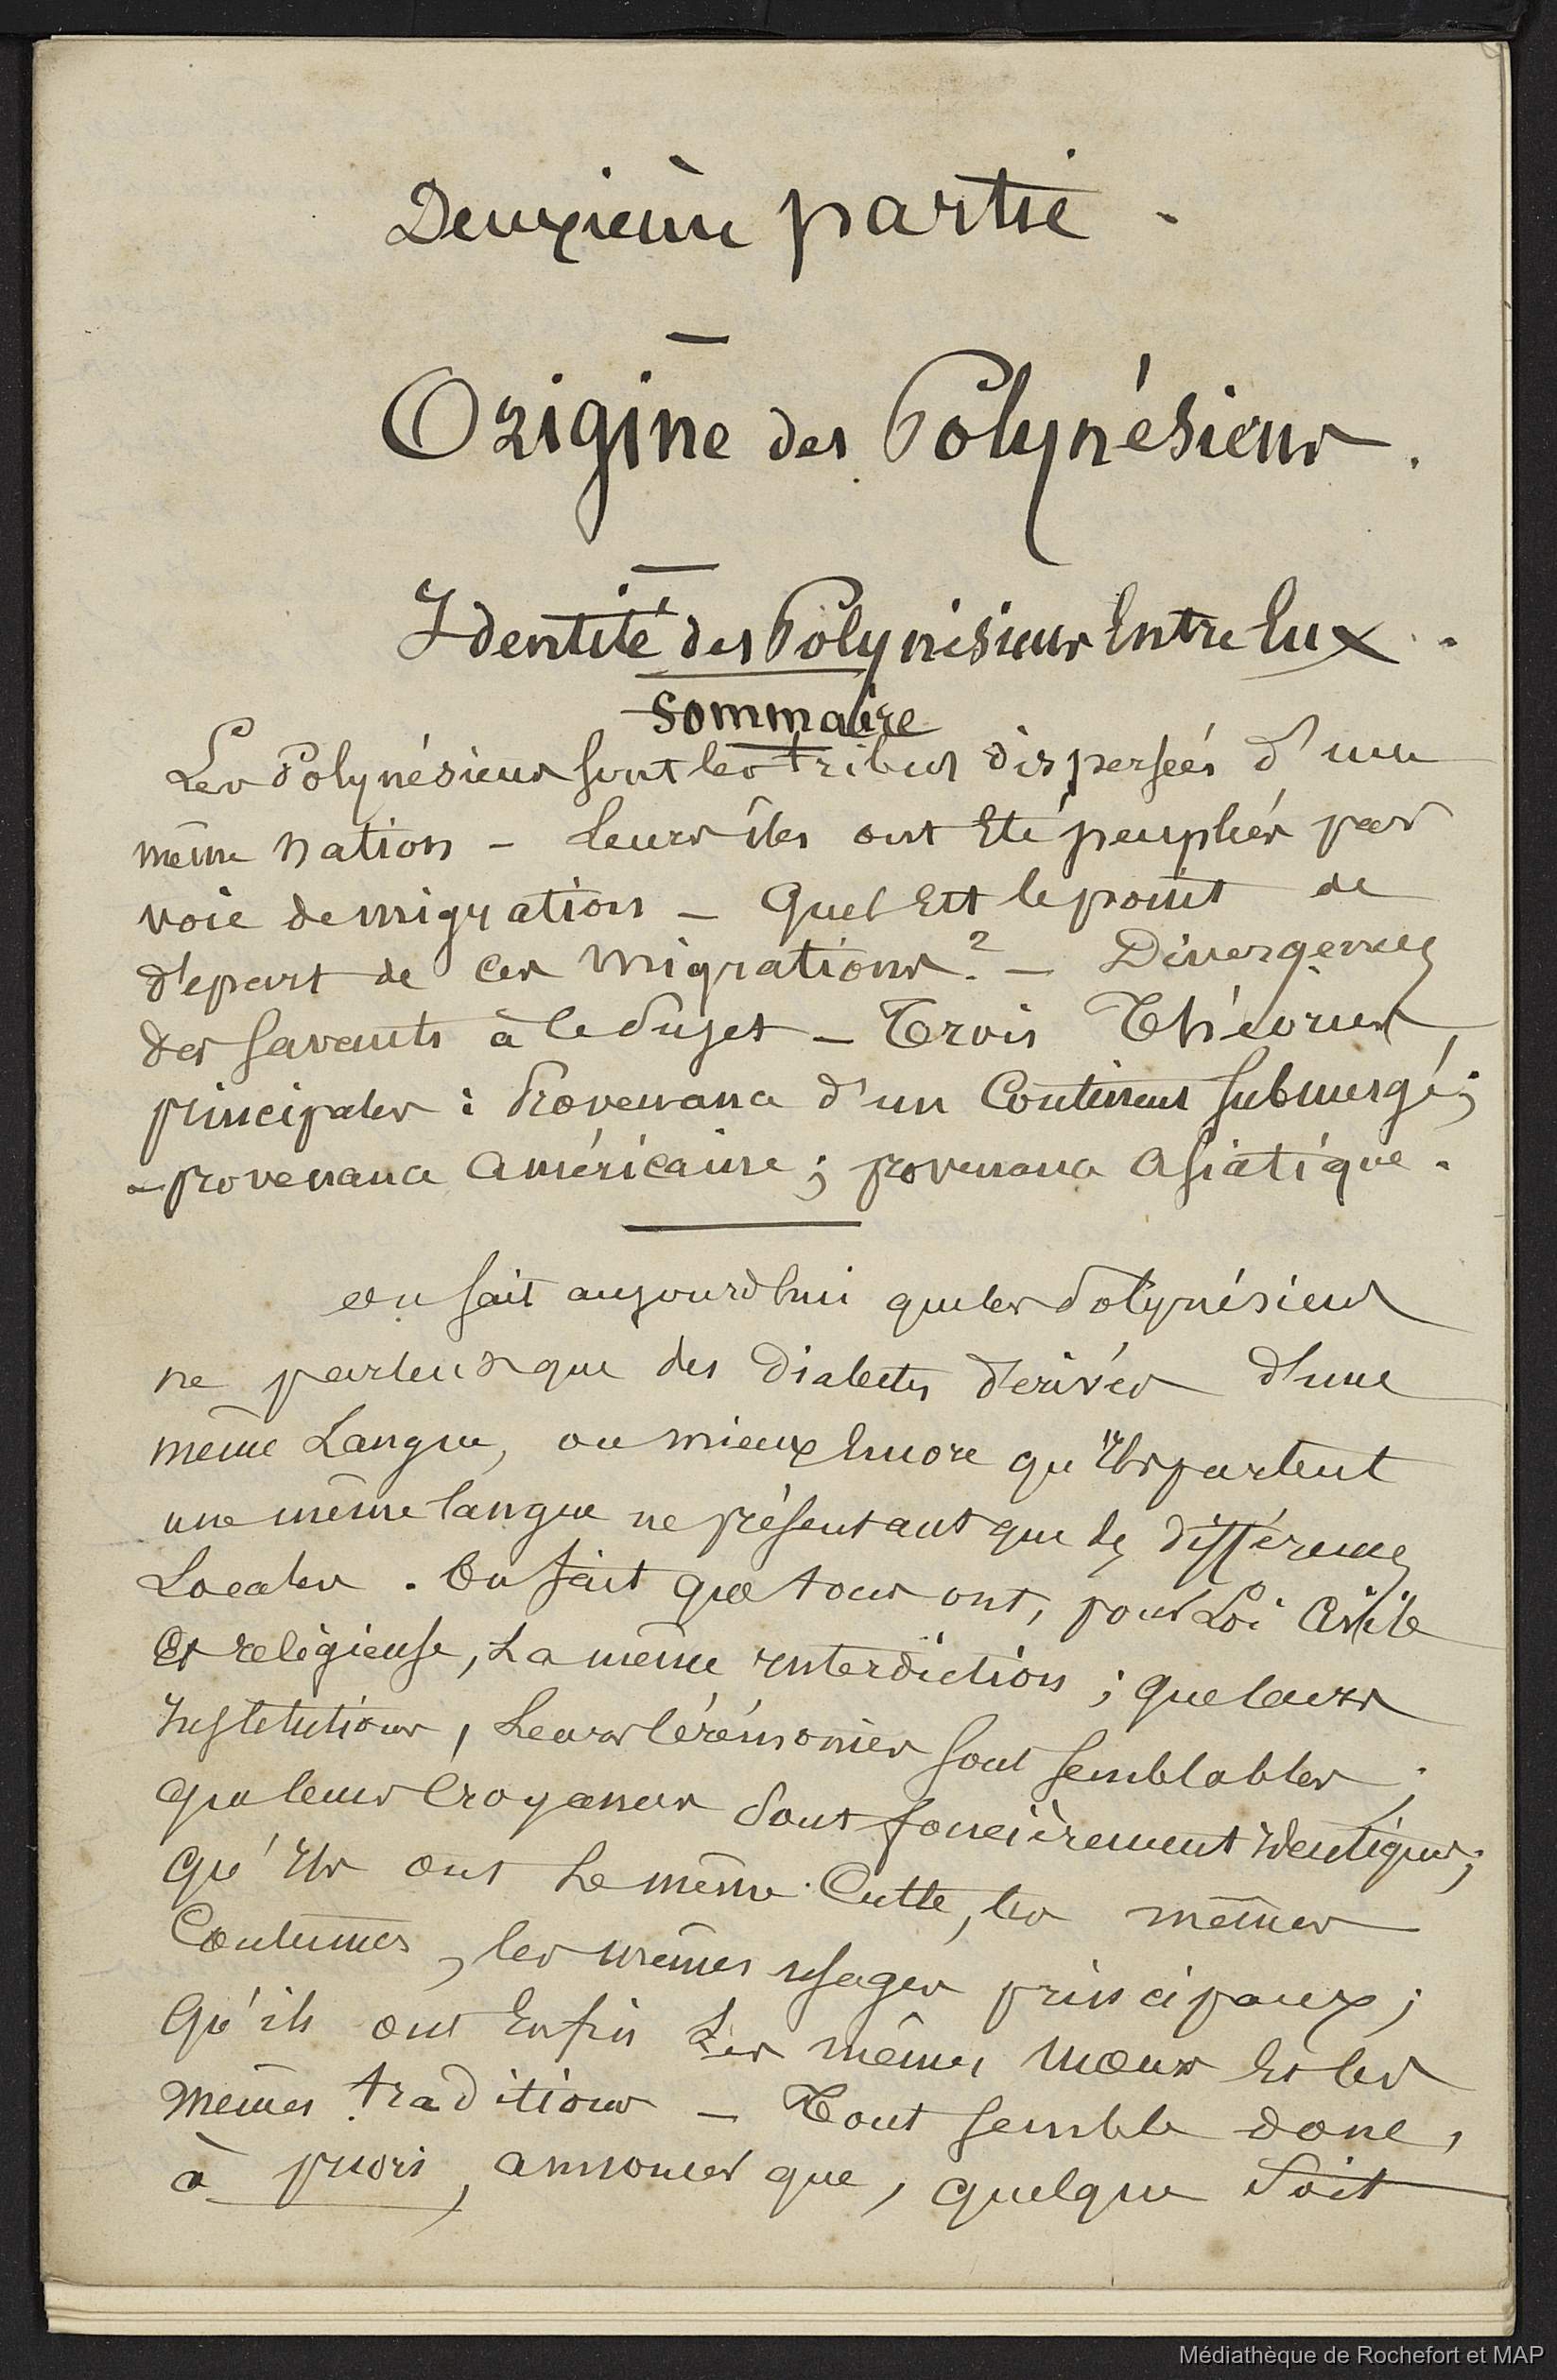 Deuxième partie -
Origine des Polynésiens.
Identité des Polynésiens Entre Eux.
Sommaire
Les Polynésiens sont les tribus dispersées d'une
même nation - Leurs îles ont Eté peuplées par
voie de migration - Quel Est le point de
départ de ces migrations? - Divergences
des savants à ce sujet - Trois Théories
principales : Provenance d'un Continent submergé;
- provenance Américaine; provenance Asiatique.
On sait aujourd'hui que les Polynésiens
ne parlent que des Dialectes dérivés d'une
même Langue, ou mieux Encore qu'Ils parlent
une même langue ne présentant que des différences
Locales. On sait que tous ont, pour Loi Civile
Et religieuse, La même Interdiction; que leurs
Institutions, Leurs Cérémonies sont semblables;
que leurs Croyances sont foncièrement Identiques;
qu'Ils ont Le même Culte, les mêmes
Coutumes, les mêmes usages principaux;
Qu'ils ont Enfin Les mêmes Mœurs Et les
mêmes traditions - Tout semble donc,
à priori, annoncer que, quelque soit
Médiathèque de Rochefort et MAP